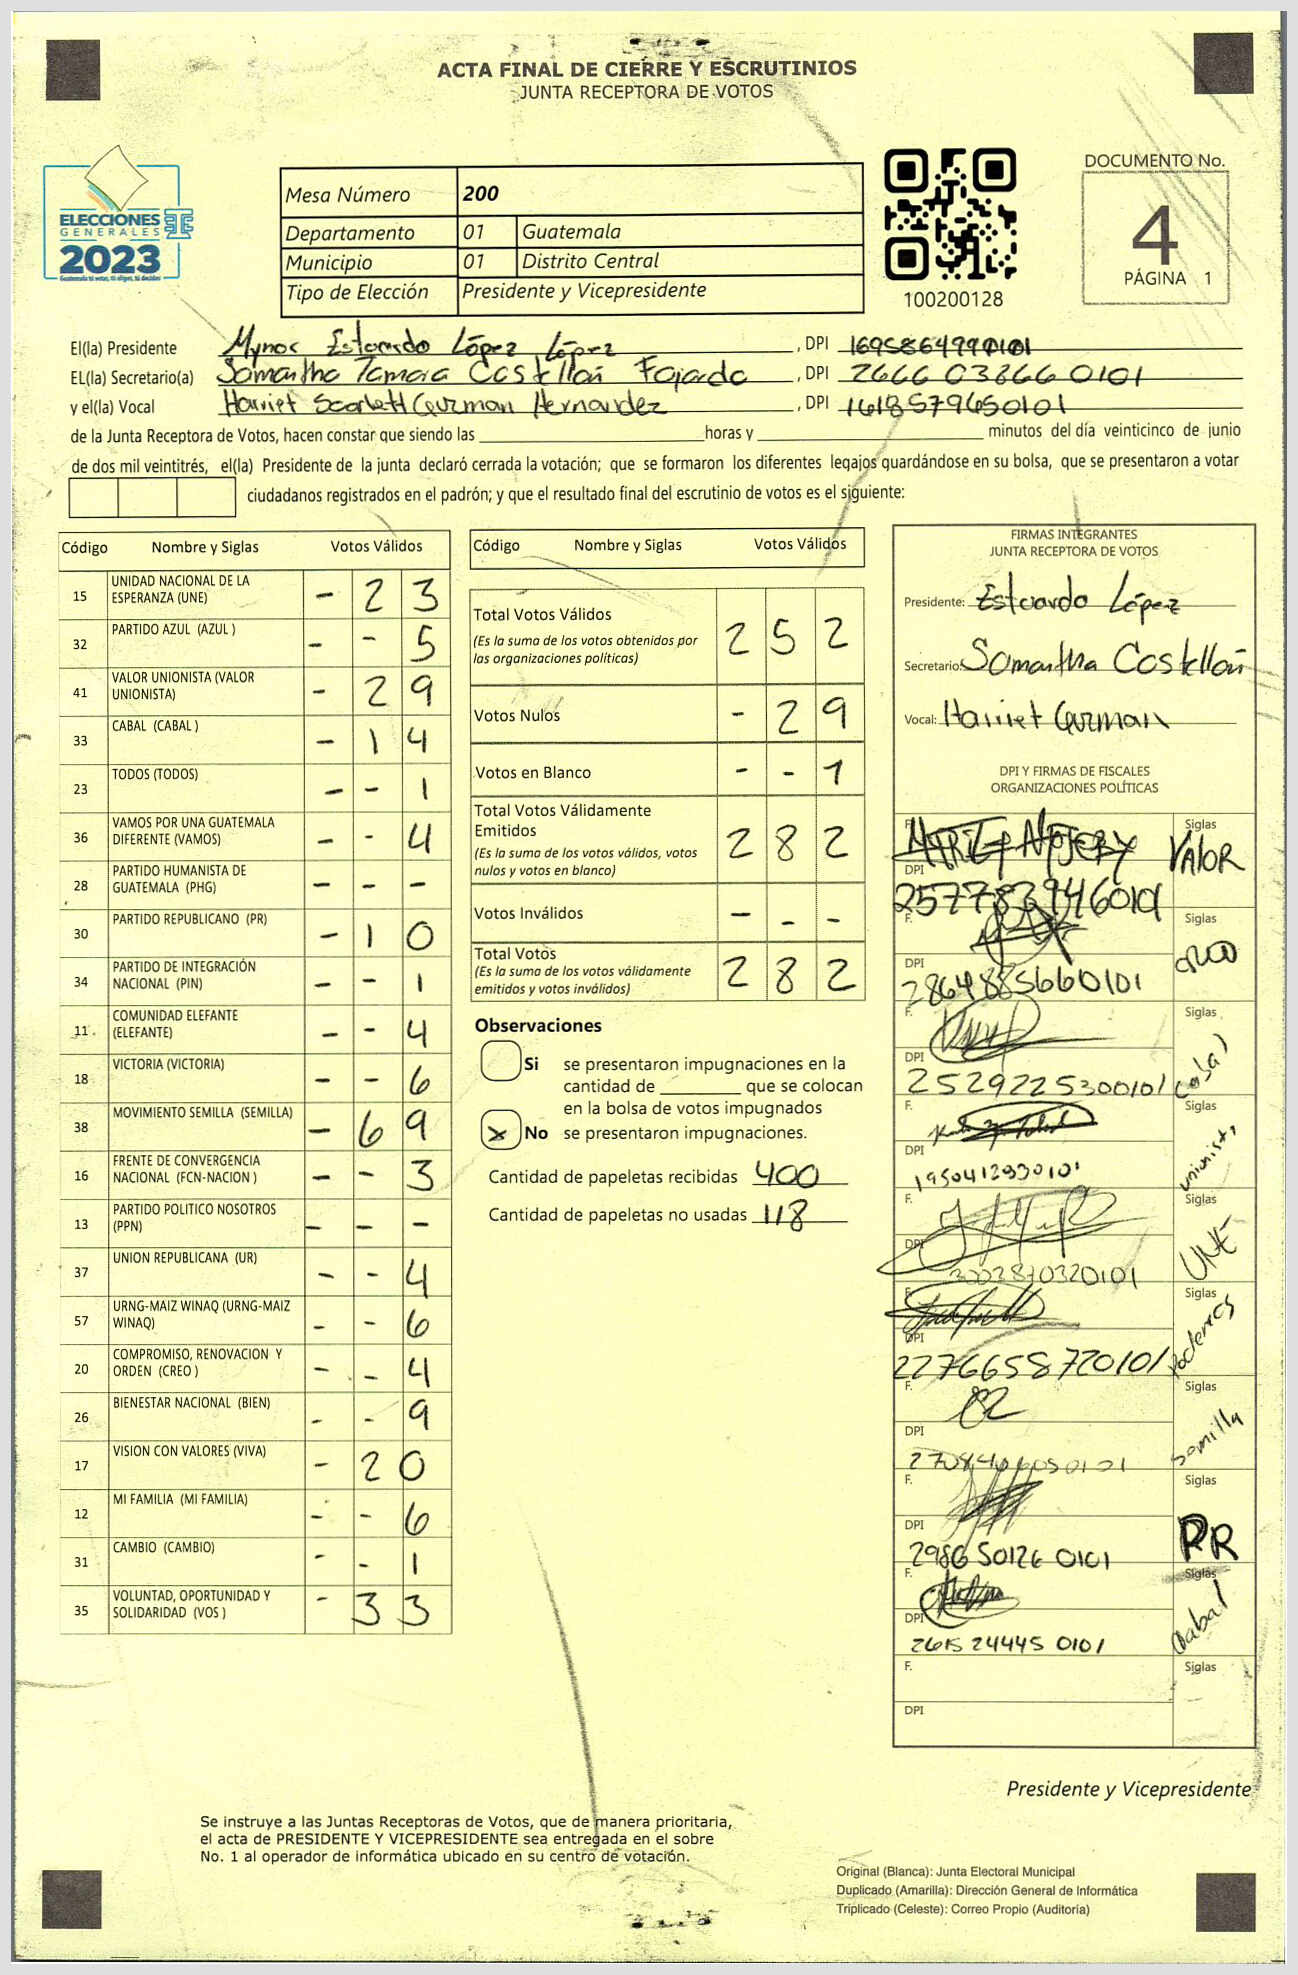 ACTA FINAL DE CIERRE Y ESCRUTINIOS
JUNTA RECEPTORA DE VOTOS
ELECCIONES
GENERALES
2023
Guatemala tú votas, tú eliges, tú decides
Mesa Número 200
Departamento 01 Guatemala
Municipio 01 Distrito Central
Tipo de Elección Presidente y Vicepresidente
100200128
DOCUMENTO No.
4
PÁGINA 1
El(la) Presidente Mynor Estuardo López López , DPI 1695864990101
EL(la) Secretario(a) Samantha Tamara Castellón Fajardo , DPI 2666 03866 0101
y el(la) Vocal Harriet Scarlett Guzman Hernandez , DPI 1618579650101
de la Junta Receptora de Votos, hacen constar que siendo las horas y minutos del día veinticinco de junio
de dos mil veintitrés, el(la) Presidente de la junta declaró cerrada la votación; que se formaron los diferentes legajos guardándose en su bolsa, que se presentaron a votar
ciudadanos registrados en el padrón; y que el resultado final del escrutinio de votos es el siguiente:
Código Nombre y Siglas Votos Válidos
15 UNIDAD NACIONAL DE LA ESPERANZA (UNE) - 2 3
32 PARTIDO AZUL (AZUL ) - - 5
41 VALOR UNIONISTA (VALOR UNIONISTA) - 2 9
33 CABAL (CABAL ) - 1 4
23 TODOS (TODOS) - - 1
36 VAMOS POR UNA GUATEMALA DIFERENTE (VAMOS) - - 4
28 PARTIDO HUMANISTA DE GUATEMALA (PHG) - - -
30 PARTIDO REPUBLICANO (PR) - 1 0
34 PARTIDO DE INTEGRACIÓN NACIONAL (PIN) - - 1
11 COMUNIDAD ELEFANTE (ELEFANTE) - - 4
18 VICTORIA (VICTORIA) - - 6
38 MOVIMIENTO SEMILLA (SEMILLA) - 6 9
16 FRENTE DE CONVERGENCIA NACIONAL (FCN-NACION ) - - 3
13 PARTIDO POLITICO NOSOTROS (PPN) - - -
37 UNION REPUBLICANA (UR) - - 4
57 URNG-MAIZ WINAQ (URNG-MAIZ WINAQ) - - 6
20 COMPROMISO, RENOVACION Y ORDEN (CREO ) - - 4
26 BIENESTAR NACIONAL (BIEN) - - 9
17 VISION CON VALORES (VIVA) - 2 0
12 MI FAMILIA (MI FAMILIA) - - 6
31 CAMBIO (CAMBIO) - - 1
35 VOLUNTAD, OPORTUNIDAD Y SOLIDARIDAD (VOS ) - 3 3
Código Nombre y Siglas Votos Válidos
Total Votos Válidos 2 5 2
(Es la suma de los votos obtenidos por
las organizaciones políticas)
Votos Nulos - 2 9
Votos en Blanco - - 1
Total Votos Válidamente
Emitidos 2 8 2
(Es la suma de los votos válidos, votos
nulos y votos en blanco)
Votos Inválidos - - -
Total Votos 2 8 2
(Es la suma de los votos válidamente
emitidos y votos inválidos)
Observaciones
Si se presentaron impugnaciones en la
cantidad de que se colocan
en la bolsa de votos impugnados
x No se presentaron impugnaciones.
Cantidad de papeletas recibidas 400
Cantidad de papeletas no usadas 118
FIRMAS INTEGRANTES
JUNTA RECEPTORA DE VOTOS
Presidente: Estuardo López
Secretario: Samantha Castellón
Vocal: Harriet Guzman
DPI Y FIRMAS DE FISCALES
ORGANIZACIONES POLÍTICAS
F. Siglas VALOR
DPI
F. Siglas
DPI 2864885660101
F. Siglas Cabal
DPI 2529225300101
F. Siglas unionista
DPI 1950412930101
F. Siglas UNE
DPI 3002870320101
F. Siglas Poderes
DPI 2276658720101
F. Siglas Semilla
DPI
F. Siglas PR
DPI 2986 50126 0101
F. Siglas Cabal
DPI 2615 24445 0101
F. Siglas
DPI
Presidente y Vicepresidente
Se instruye a las Juntas Receptoras de Votos, que de manera prioritaria,
el acta de PRESIDENTE Y VICEPRESIDENTE sea entregada en el sobre
No. 1 al operador de informática ubicado en su centro de votación.
Original (Blanca): Junta Electoral Municipal
Duplicado (Amarilla): Dirección General de Informática
Triplicado (Celeste): Correo Propio (Auditoría)